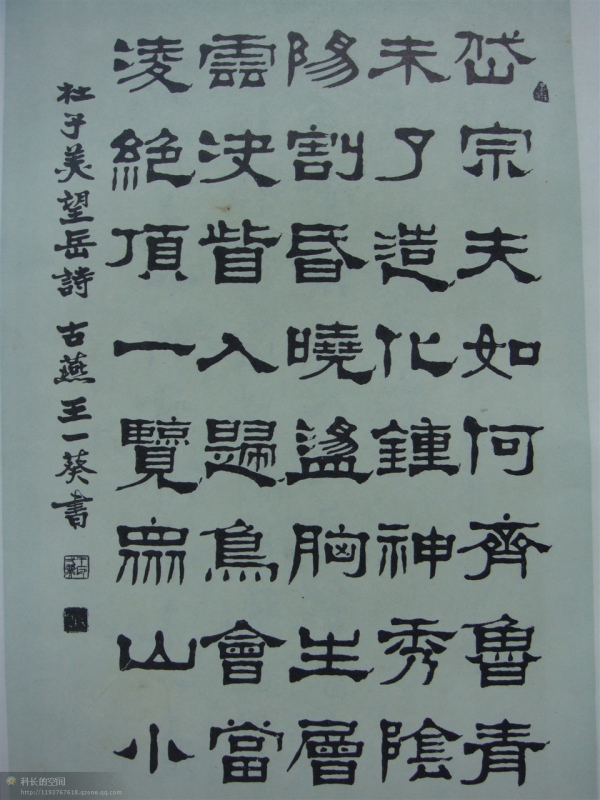 岱宗夫如何齊魯青
未了造化鍾神秀陰
陽割昏曉盪胸生層
雲決眥入歸鳥會當
凌絕頂一覽眾山小
杜子美望岳詩 古燕王一葵書
科长的空间
http://1193767618.qzone.qq.com